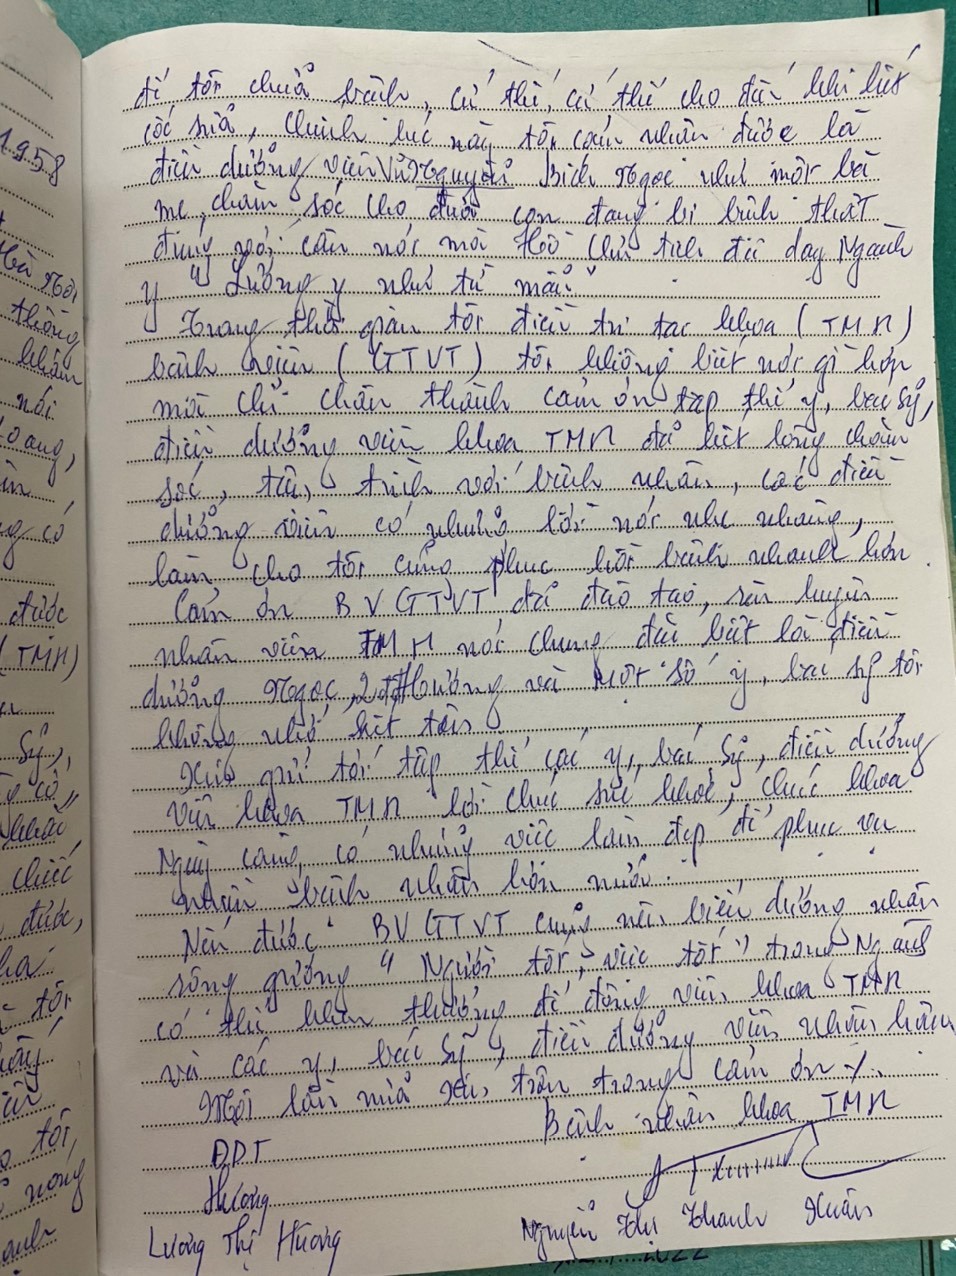 1958
để tôi chữa bệnh, cứ thế, cứ thế cho đến khi hết
cốc sữa, chính lúc này tôi cảm nhận được là
điều dưỡng viên Vũ Nguyễn Bích Ngọc như một bà
mẹ, chăm sóc cho đứa con đang bị bệnh thật
đúng với câu nói mà Hồ Chủ tịch đã dạy Ngành
y "Lương y như từ mẫu"
Trong thời gian tôi điều trị tại khoa (TMH)
bệnh viện (GTVT) tôi không biết nói gì hơn
mà chỉ chân thành cảm ơn tập thể y, bác sỹ,
điều dưỡng viên khoa TMH đã hết lòng chăm
sóc, tận tình với bệnh nhân, các điều
dưỡng viên có những lời nói nhẹ nhàng,
làm cho tôi cũng phục hồi bệnh nhanh hơn
Cảm ơn BV GTVT đã đào tạo, rèn luyện
nhân viên TMH nói chung đặc biệt là điều
dưỡng Ngọc, Hương và một số y, bác sỹ tôi
không nhớ hết tên
Xin gửi tới tập thể các y, bác sỹ, điều dưỡng
viên khoa TMH lời chúc sức khoẻ, chúc khoa
Ngày càng có những việc làm đẹp để phục vụ
bệnh nhân hơn nữa.
Nếu được BV GTVT cũng nên biểu dương nhân
rộng gương "Người tốt, việc tốt" trong Ngành
có thể khen thưởng để động viên khoa TMH
và các y, bác sỹ, điều dưỡng viên
Một lần nữa xin trân trọng cảm ơn ./.
Bệnh nhân khoa TMH
ĐDT
Hương
Lương Thị Hương
Nguyễn Thị Thanh Xuân